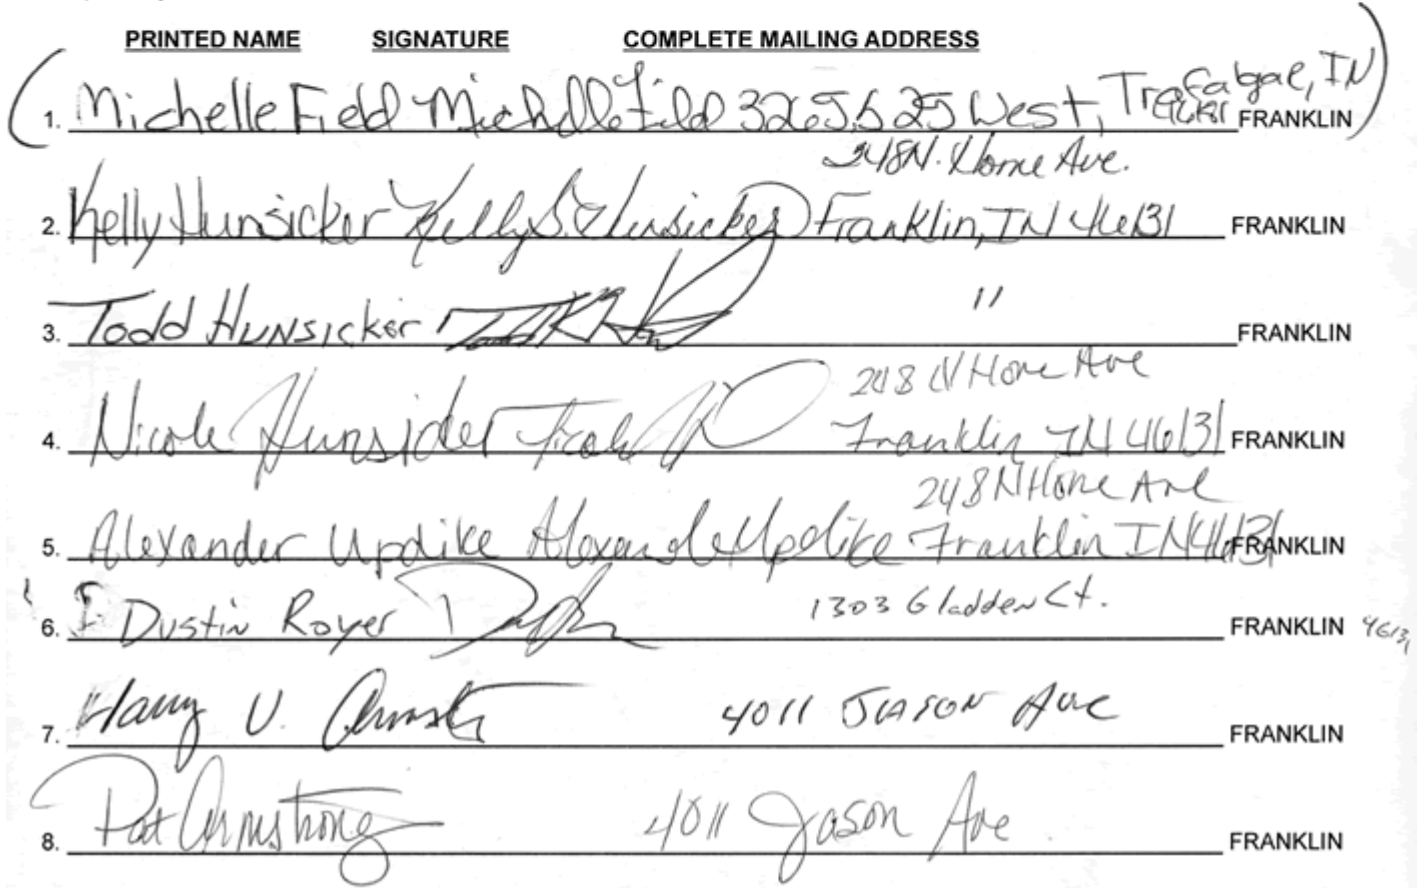 PRINTED NAME SIGNATURE COMPLETE MAILING ADDRESS
1. Michelle Field Michelle Field 3265 S 25 West, Trafalgar, IN FRANKLIN
248 N. Home Ave.
2. Kelly Hunsicker Kelly S. Hunsicker Franklin, IN 46131 FRANKLIN
3. Todd Hunsicker " FRANKLIN
248 N Home Ave
4. Nicole Hunsicker Franklin IN 46131 FRANKLIN
248 N Home Ave
5. Alexander Updike Alexander Updike Franklin IN 46131 FRANKLIN
6. Dustin Royer 1303 Gladden Ct. FRANKLIN 46131
7. Harry V. 4011 Jason Ave FRANKLIN
8. Pat Armstrong 4011 Jason Ave FRANKLIN